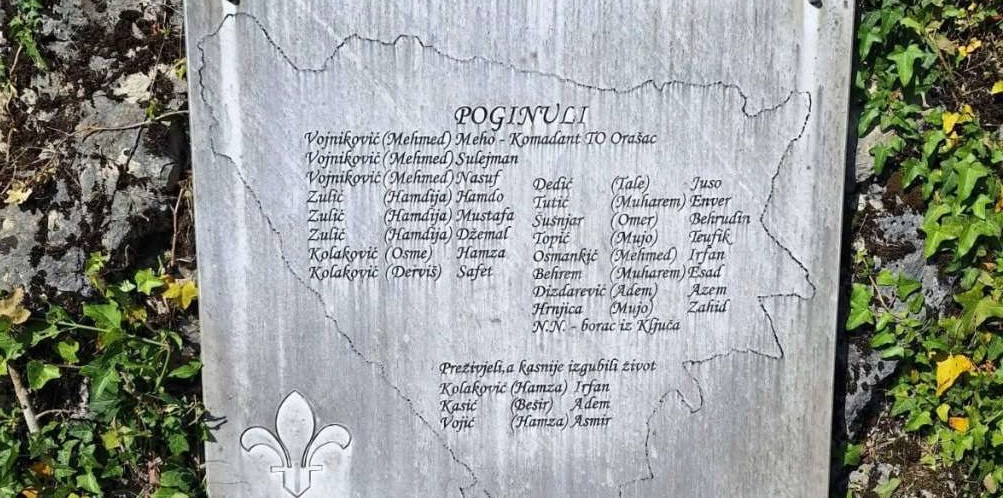 POGINULI
Vojniković (Mehmed) Meho - Komadant TO Orašac
Vojniković (Mehmed) Sulejman
Vojniković (Mehmed) Nasuf
Zulić (Hamdija) Hamdo
Zulić (Hamdija) Mustafa
Zulić (Hamdija) Džemal
Kolaković (Osme) Hamza
Kolaković (Derviš) Safet
Dedić (Tale) Juso
Tutić (Muharem) Enver
Šušnjar (Omer) Behrudin
Topić (Mujo) Teufik
Osmankić (Mehmed) Irfan
Behrem (Muharem) Esad
Dizdarević (Adem) Azem
Hrnjica (Mujo) Zahid
N.N. - borac iz Ključa
Preživjeli,a kasnije izgubili život
Kolaković (Hamza) Irfan
Kasić (Bešir) Adem
Vojić (Hamza) Asmir